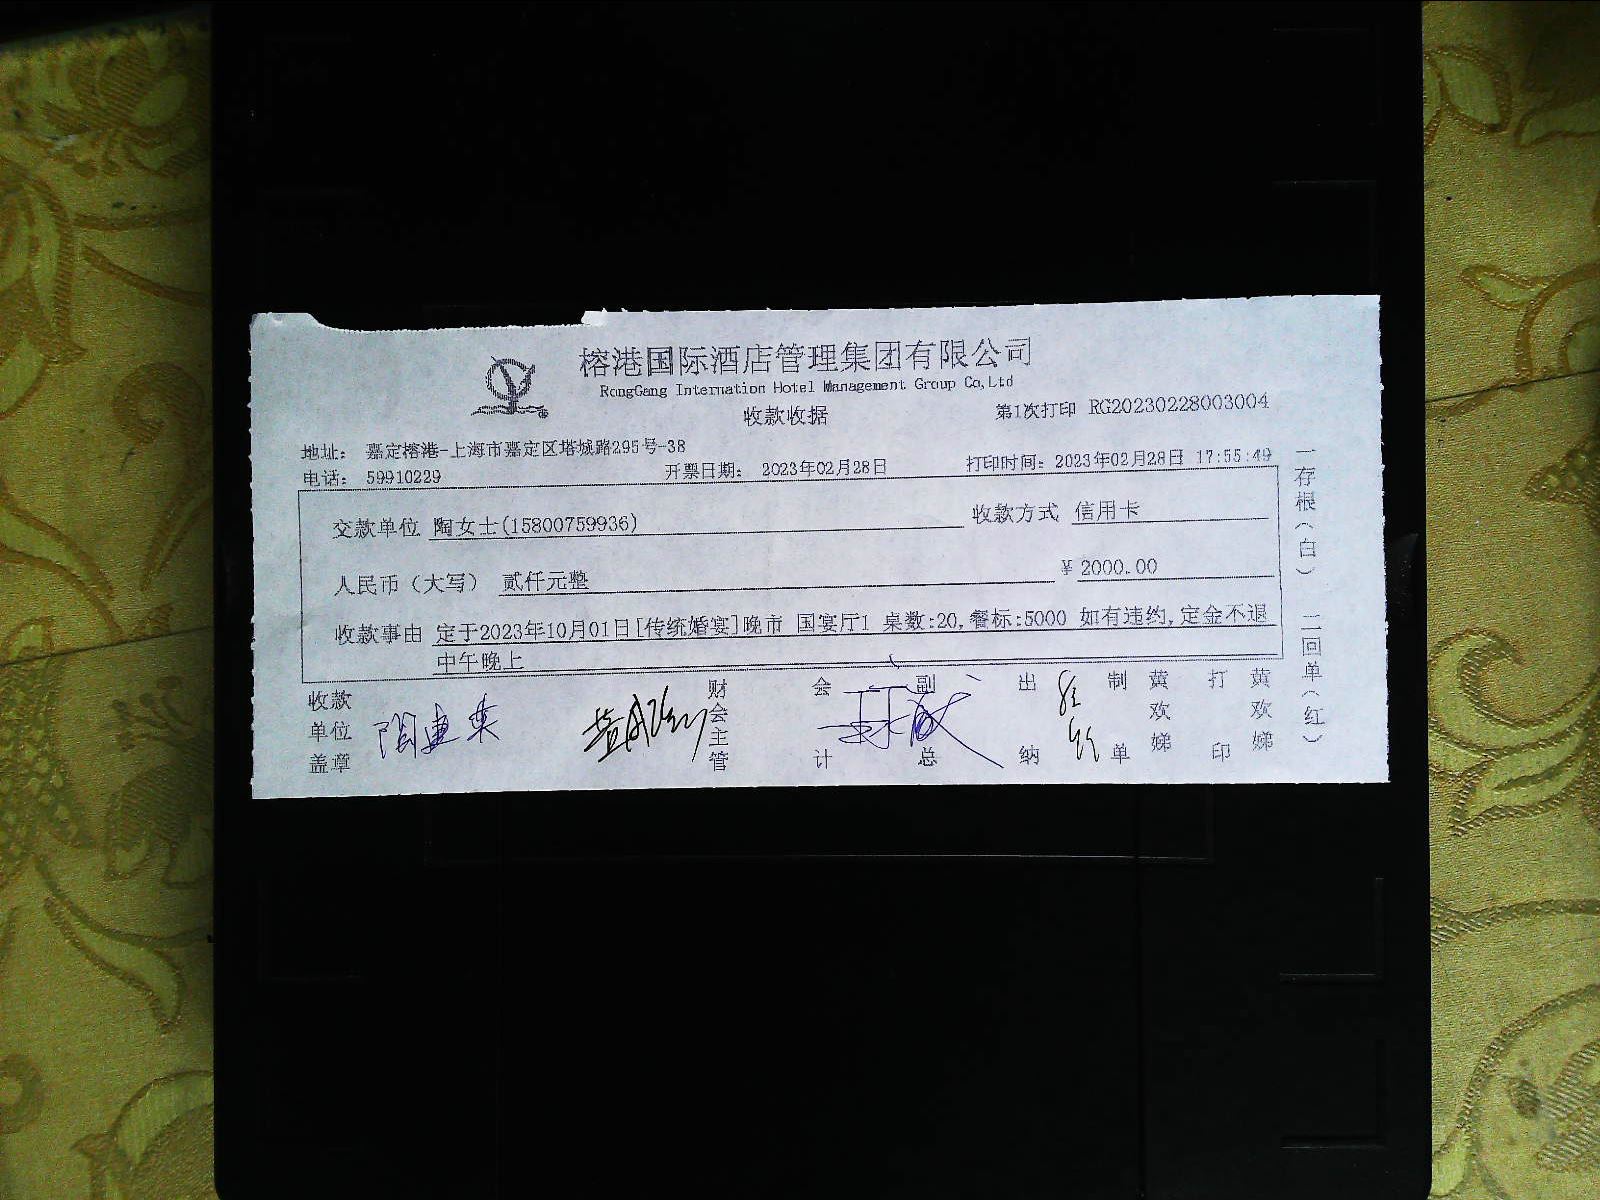 榕港国际酒店管理集团有限公司
RongGang Internation Hotel Management Group Co,Ltd
收款收据
第1次打印 RG20230228003004
地址： 嘉定榕港-上海市嘉定区塔城路295号-38
电话： 59910229 开票日期： 2023年02月28日 打印时间：2023年02月28日 17:55:49
交款单位 陶女士(15800759936) 收款方式 信用卡
人民币（大写） 贰仟元整 ￥2000.00
收款事由 定于2023年10月01日[传统婚宴]晚市 国宴厅1 桌数:20,餐标:5000 如有违约,定金不退
中午晚上
收款单位盖章
财会主管
会计
副总
出纳
制单 黄欢娣
打印 黄欢娣
一存根（白） 二回单（红）